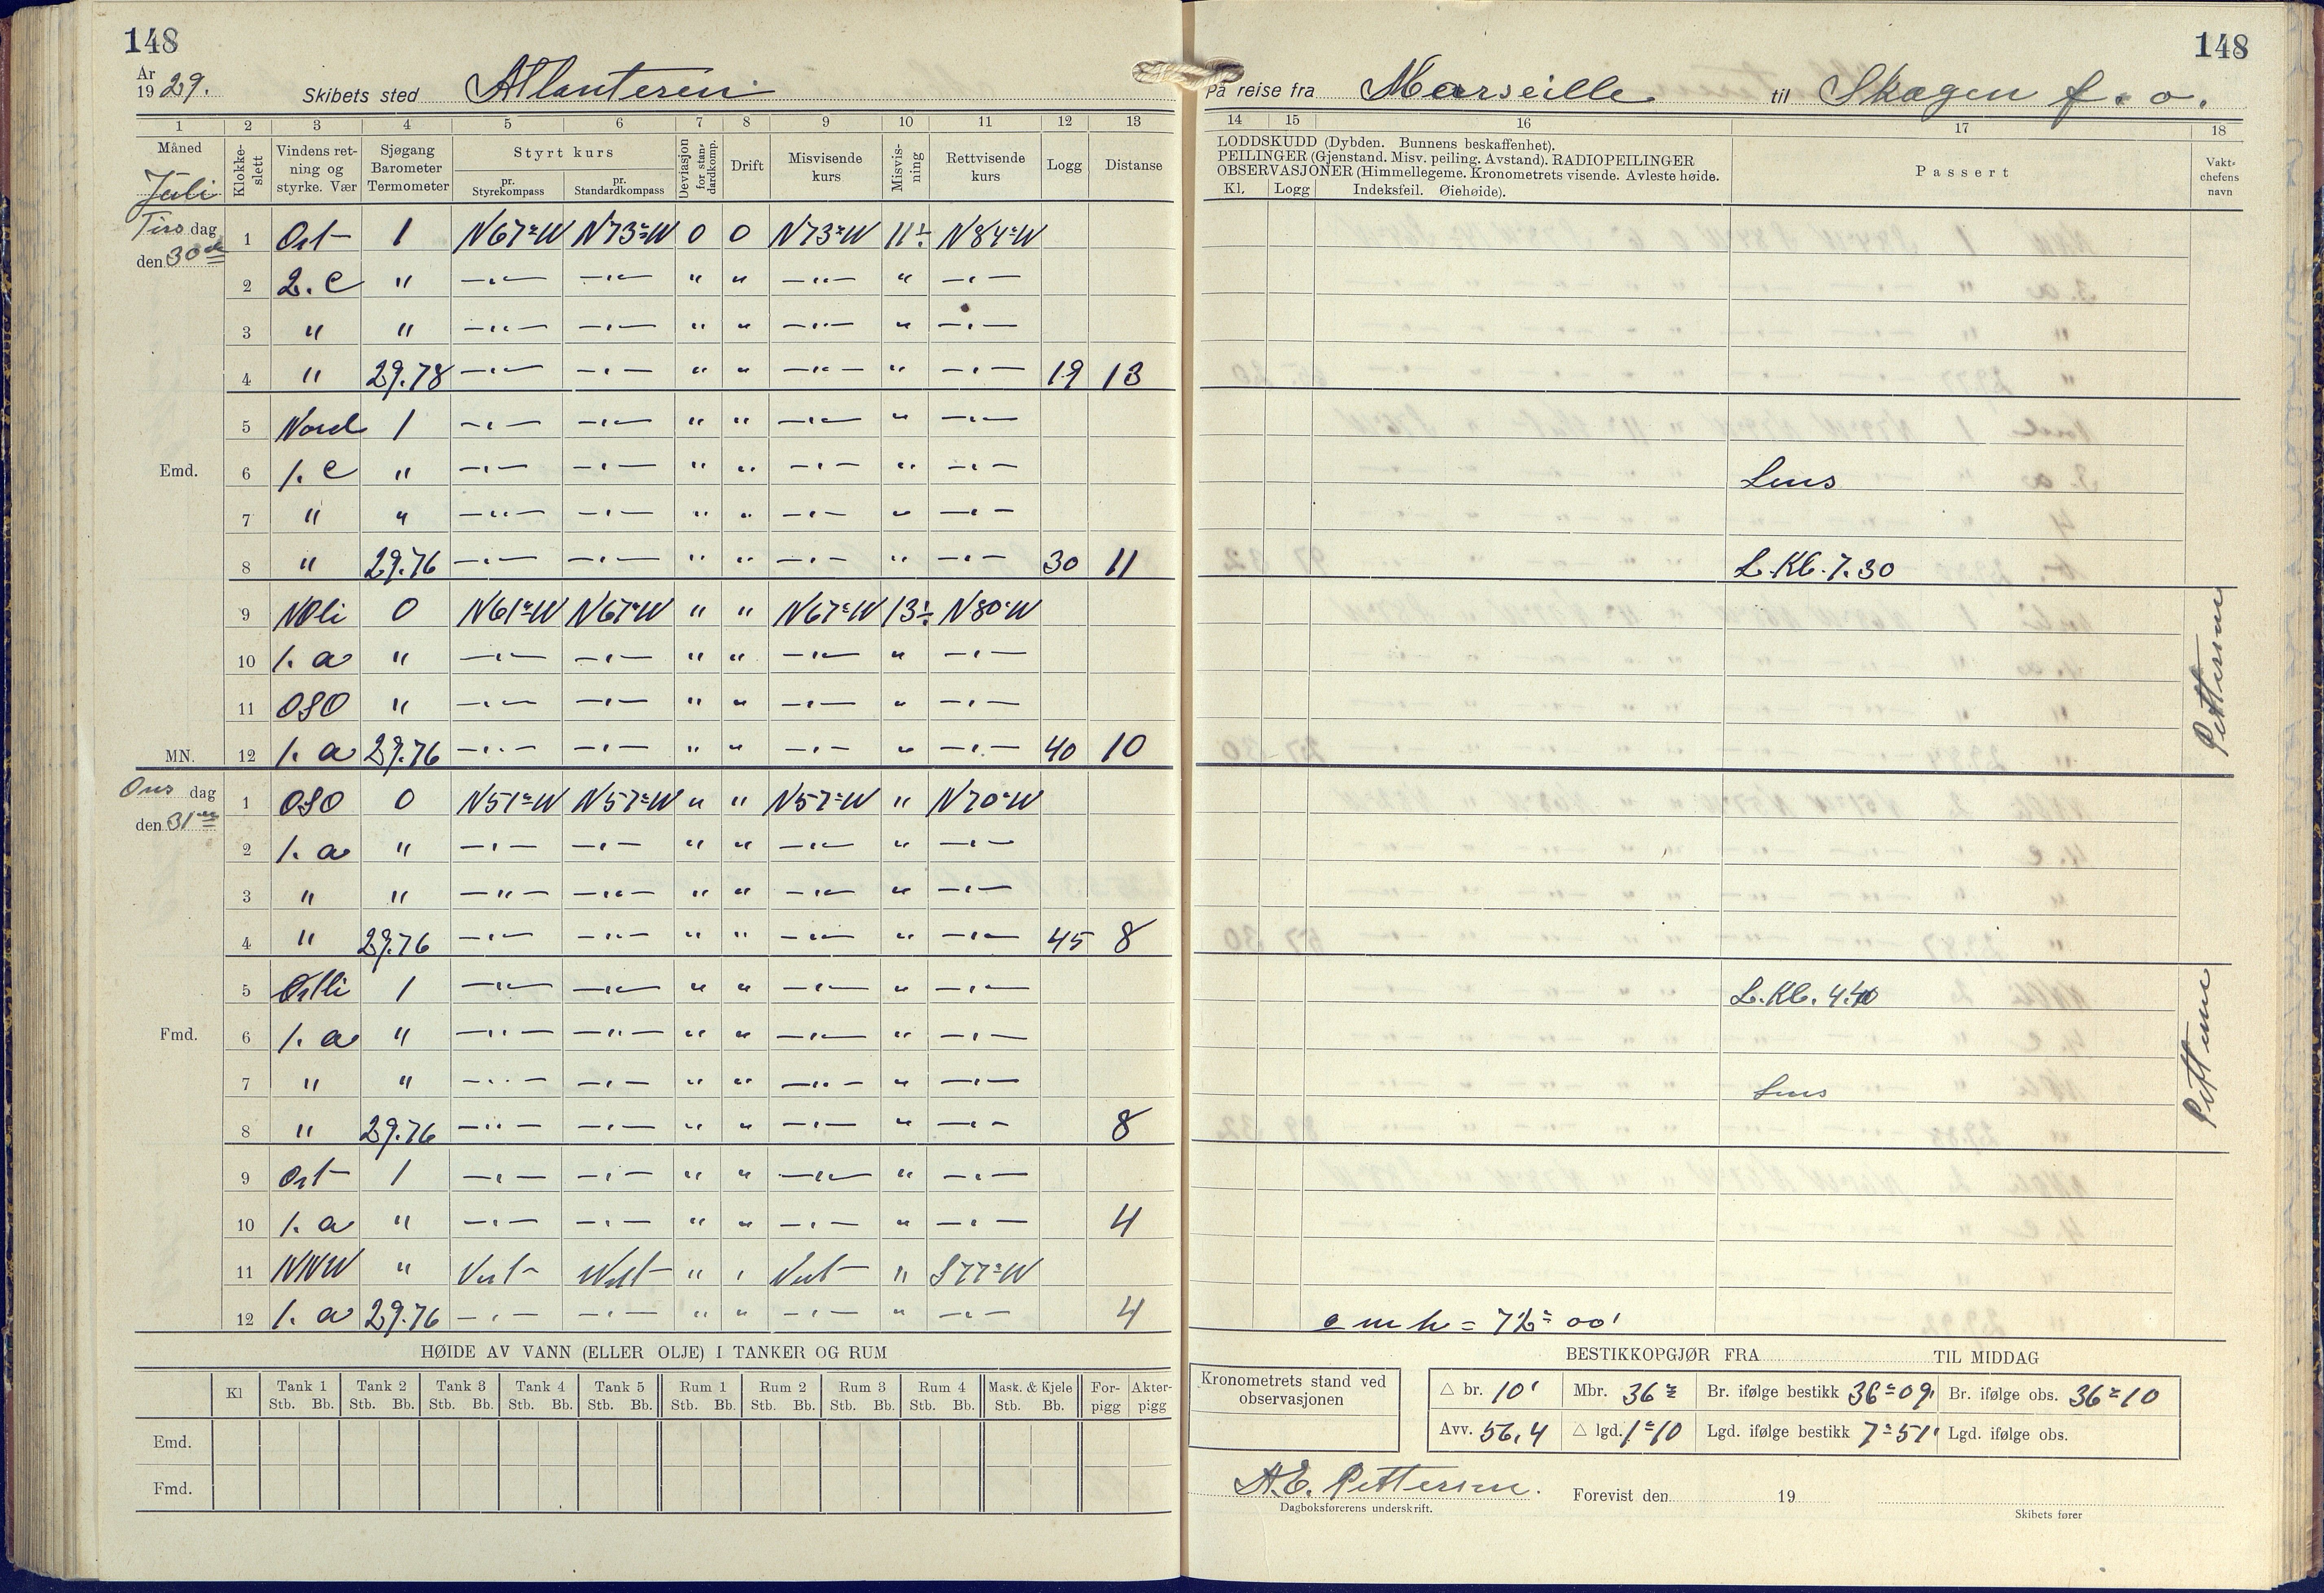 148
148
År
19 29.
Skibets sted Atlanteren
På reise fra Marseille til Skagen f. o.
1 2 3 4 5 6 7 8 9 10 11 12 13 14 15 16 17 18
Måned Juli
Klokkeslett
Vindens retning og styrke. Vær
Sjøgang Barometer Termometer
Styrt kurs
pr. Styrekompass
pr. Standardkompass
Deviasjon for standardkomp.
Drift
Misvisende kurs
Misvisning
Rettvisende kurs
Logg
Distanse
LODDSKUDD (Dybden. Bunnens beskaffenhet).
PEILINGER (Gjenstand. Misv. peiling. Avstand). RADIOPEILINGER
OBSERVASJONER (Himmellegeme. Kronometrets visende. Avleste høide.
Kl. Logg Indeksfeil. Øiehøide).
Passert
Vaktchefens navn
Tirsdag den 30
1 Ost 1 N67°W N73°W 0 0 N73°W 11÷ N84°W
2 2. c " —"— —"— " " —"— " —"—
3 " " —"— —"— " " —"— " —"—
4 " 29.78 —"— —"— " " —"— " —"— 19 13
5 Nord 1 —"— —"— " " —"— " —"—
Emd.
6 1. c " —"— —"— " " —"— " —"— Lens
7 " " —"— —"— " " —"— " —"—
8 " 29.76 —"— —"— " " —"— " —"— 30 11 L. Kl. 7.30
9 NOli 0 N61°W N67°W " " N67°W 13÷ N80°W
10 1. a " —"— —"— " " —"— " —"—
11 OSO " —"— —"— " " —"— " —"—
MN. 12 1. a 29.76 —"— —"— " " —"— " —"— 40 10
Pettersen
Onsdag den 31
1 OSO 0 N51°W N57°W " " N57°W " N70°W
2 1. a " —"— —"— " " —"— " —"—
3 " " —"— —"— " " —"— " —"—
4 " 29.76 —"— —"— " " —"— " —"— 45 8
5 Ostli 1 —"— —"— " " —"— " —"— L. Kl. 4.40
Fmd.
6 1. a " —"— —"— " " —"— " —"—
7 " " —"— —"— " " —"— " —"— Lens
8 " 29.76 —"— —"— " " —"— " —"— 8
Pettersen
9 Ost 1 —"— —"— " " —"— " —"—
10 1. a " —"— —"— " " —"— " —"— 4
11 NNW " Vest West " " Vest " S77°W
12 1. a 29.76 —"— —"— " " —"— " —"— 4
HØIDE AV VANN (ELLER OLJE) I TANKER OG RUM
Kl Tank 1 Tank 2 Tank 3 Tank 4 Tank 5 Rum 1 Rum 2 Rum 3 Rum 4 Mask. & Kjele Forpigg Akterpigg
Stb. Bb. Stb. Bb. Stb. Bb. Stb. Bb. Stb. Bb. Stb. Bb. Stb. Bb. Stb. Bb. Stb. Bb. Stb. Bb.
Emd.
Fmd.
BESTIKKOPGJØR FRA TIL MIDDAG
Kronometrets stand ved observasjonen
△ br. 10' Mbr. 36° Br. ifølge bestikk 36°09' Br. ifølge obs. 36°10
Avv. 56,4 △ lgd. 1°10 Lgd. ifølge bestikk 7°51' Lgd. ifølge obs.
A.E. Pettersen.
Dagboksførerens underskrift.
Forevist den 19
Skibets fører